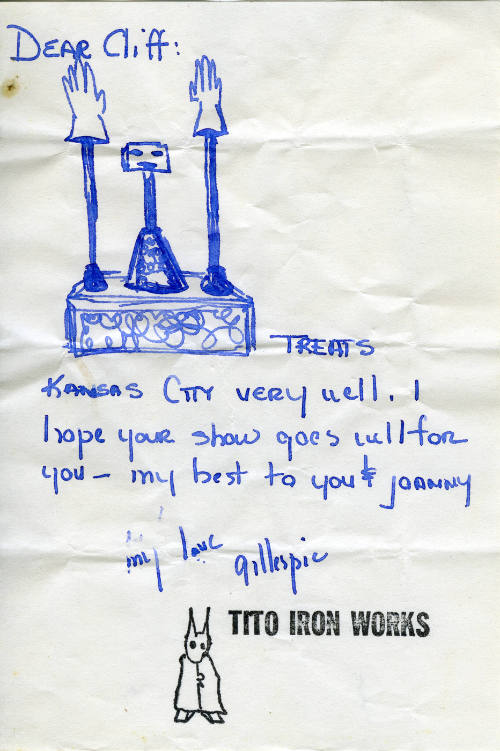 DEAR Cliff:
TREATS
KANSAS CITY VERY well. I
hope your show goes well for
you – my best to you & JOANNY
my love gillespie
TITO IRON WORKS